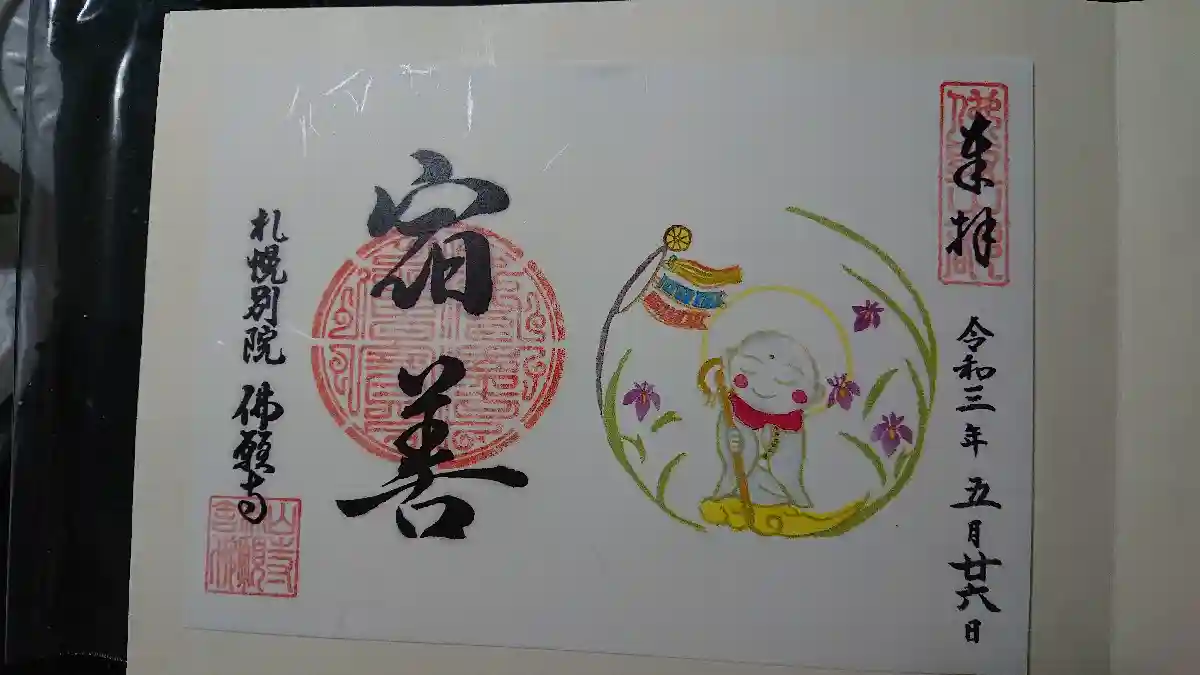 奉拝
令和三年 五月廿六日
宿善
札幌別院 佛願寺